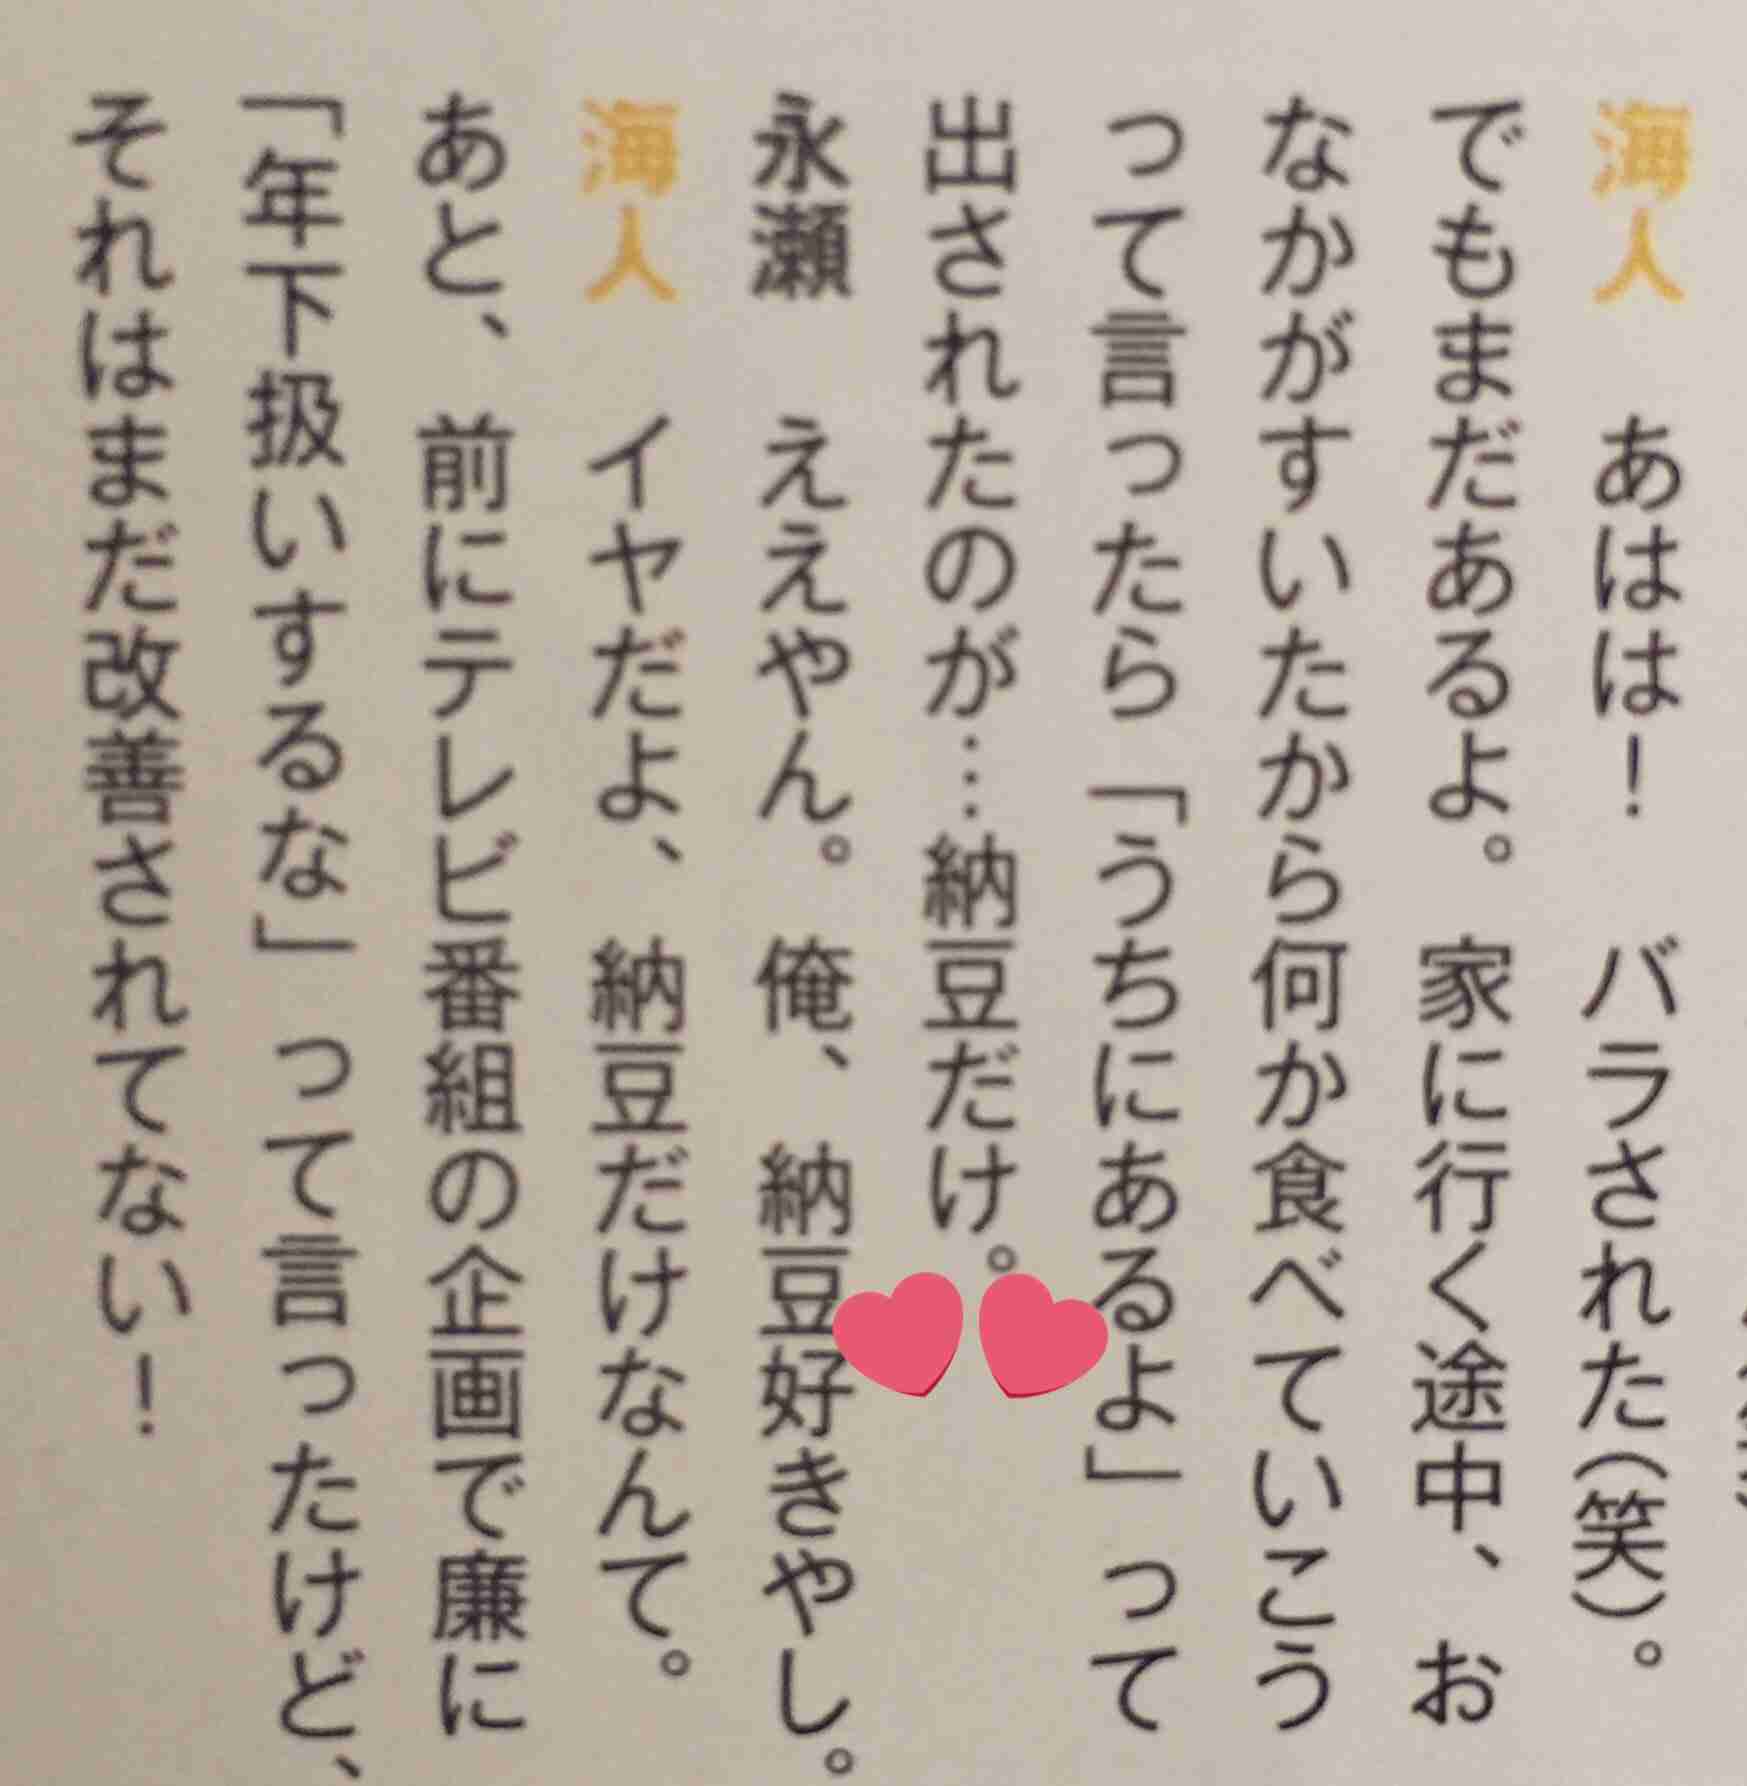 海人　あはは！　バラされた（笑）。
でもまだあるよ。家に行く途中、お
なかがすいたから何か食べていこう
って言ったら「うちにあるよ」って
出されたのが…納豆だけ。
永瀬　ええやん。俺、納豆好きやし。
海人　イヤだよ、納豆だけなんて。
あと、前にテレビ番組の企画で廉に
「年下扱いするな」って言ったけど、
それはまだ改善されてない！